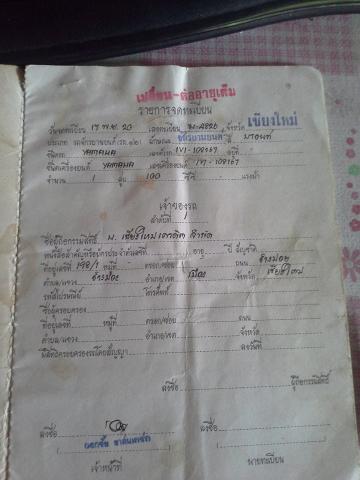 เปลี่ยน-ต่ออายุเต็ม
รายการจดทะเบียน
วันจดทะเบียน 17 พ.ย. 20 เลขทะเบียน จังหวัด เชียงใหม่
ประเภท รถจักรยานยนต์ (รย.๑๒) ลักษณะ รถจักรยานยนต์
ชนิดรถ ยามาฮ่า เลขตัวรถ 1Y1-108167 อยู่ที่
ชนิดเครื่องยนต์ ยามาฮ่า เลขเครื่องยนต์ 1Y1-108167
จำนวน 1 สูบ 100 ซีซี แรงม้า
เจ้าของรถ
ลำดับที่ 1
ชื่อผู้ถือกรรมสิทธิ์ บ. เชียงใหม่ จำกัด
อายุ ปี สัญชาติ
ที่อยู่เลขที่ 198/1 หมู่ที่ ตรอก/ซอย ถนน ช้างม่อย
ตำบล/แขวง ช้างม่อย อำเภอ/เขต เมือง จังหวัด เชียงใหม่
รหัสไปรษณีย์ โทรศัพท์
ชื่อผู้ครอบครอง
ที่อยู่เลขที่ หมู่ที่ ตรอก/ซอย ถนน
ตำบล/แขวง อำเภอ/เขต จังหวัด
มีสิทธิครอบครองรถโดยสัญญา ลงวันที่
ลงชื่อ ผู้ถือกรรมสิทธิ์
ลงชื่อ ลงชื่อ
เจ้าหน้าที่ นายทะเบียน